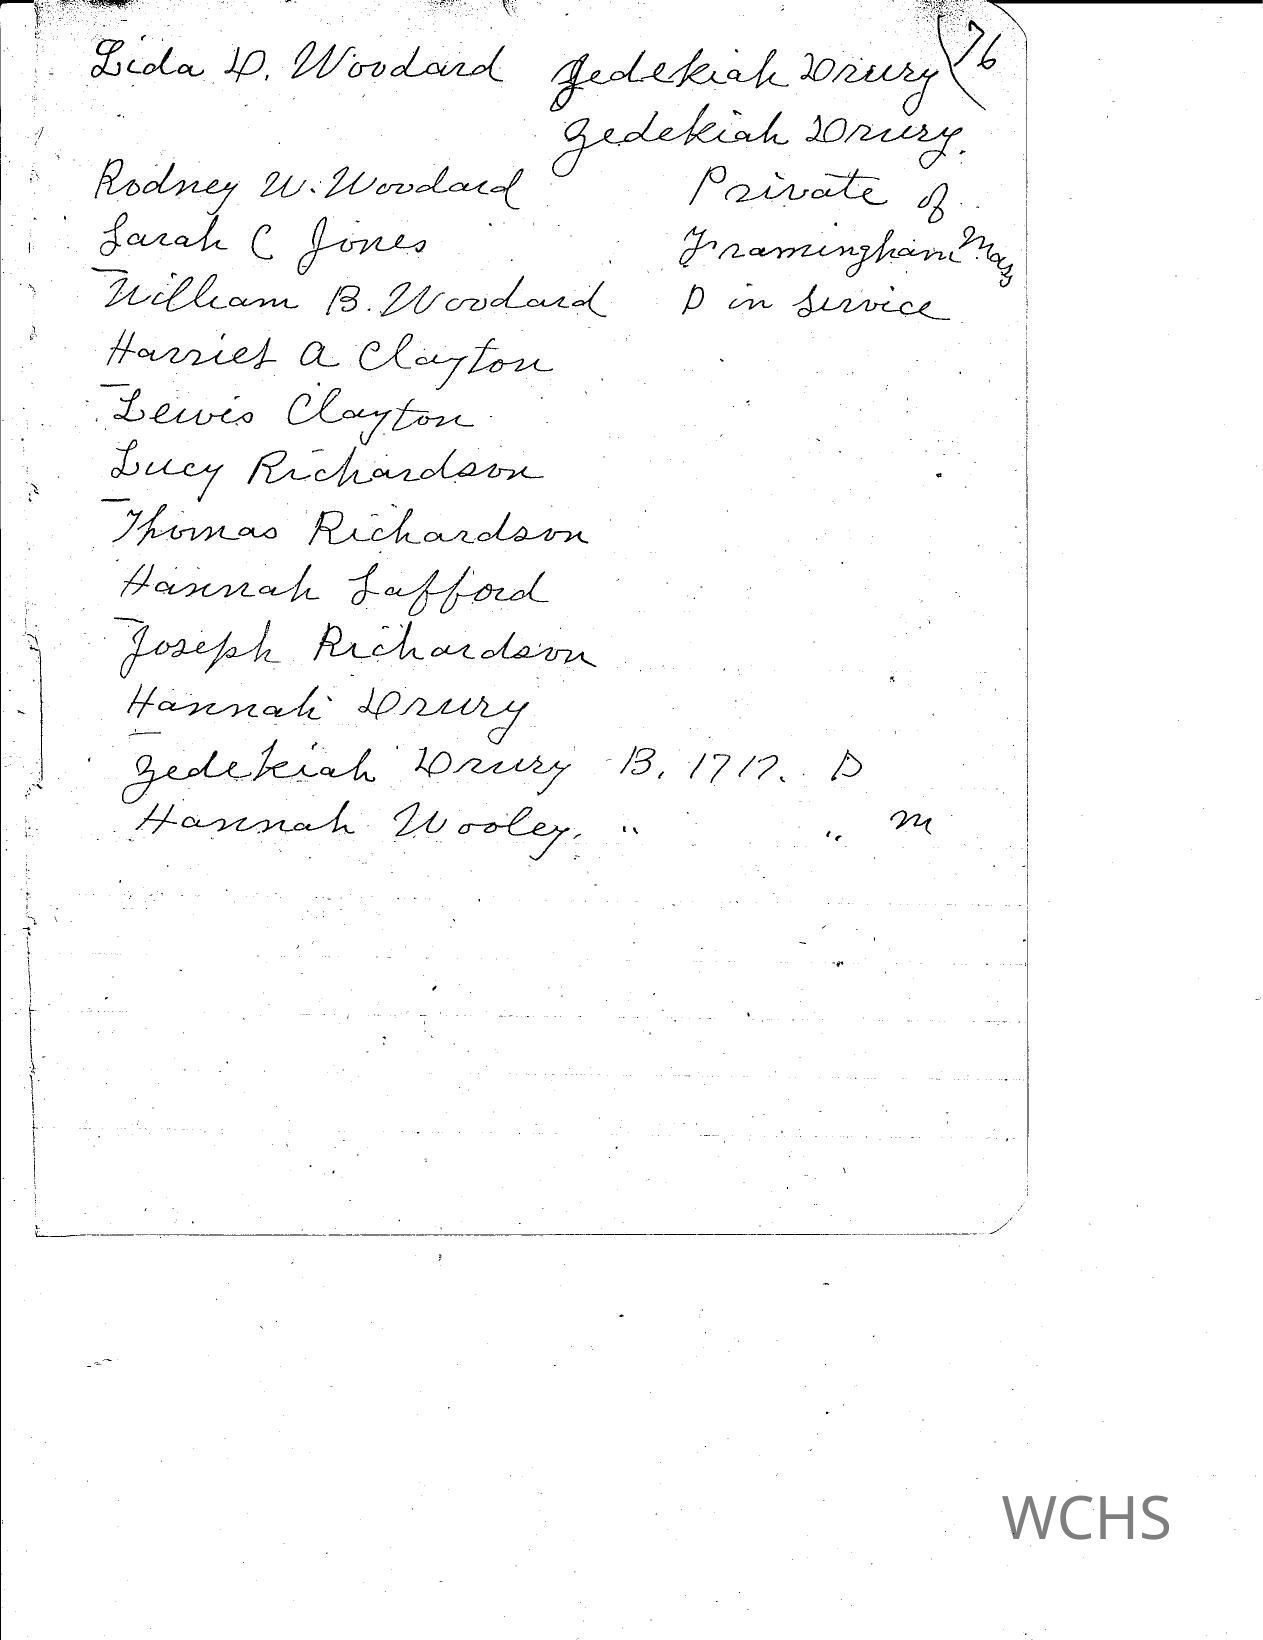 76
Lida D. Woodard Zedekiah Drury
Zedekiah Drury.
Rodney W. Woodard Private of
Sarah C Jones Framingham Mass
William B. Woodard D in Service
Harriet A Clayton
Lewis Clayton
Lucy Richardson
Thomas Richardson
Hannah Safford
Joseph Richardson
Hannah Drury
Zedekiah Drury B. 1717. D
Hannah Wooley. " " M
WCHS